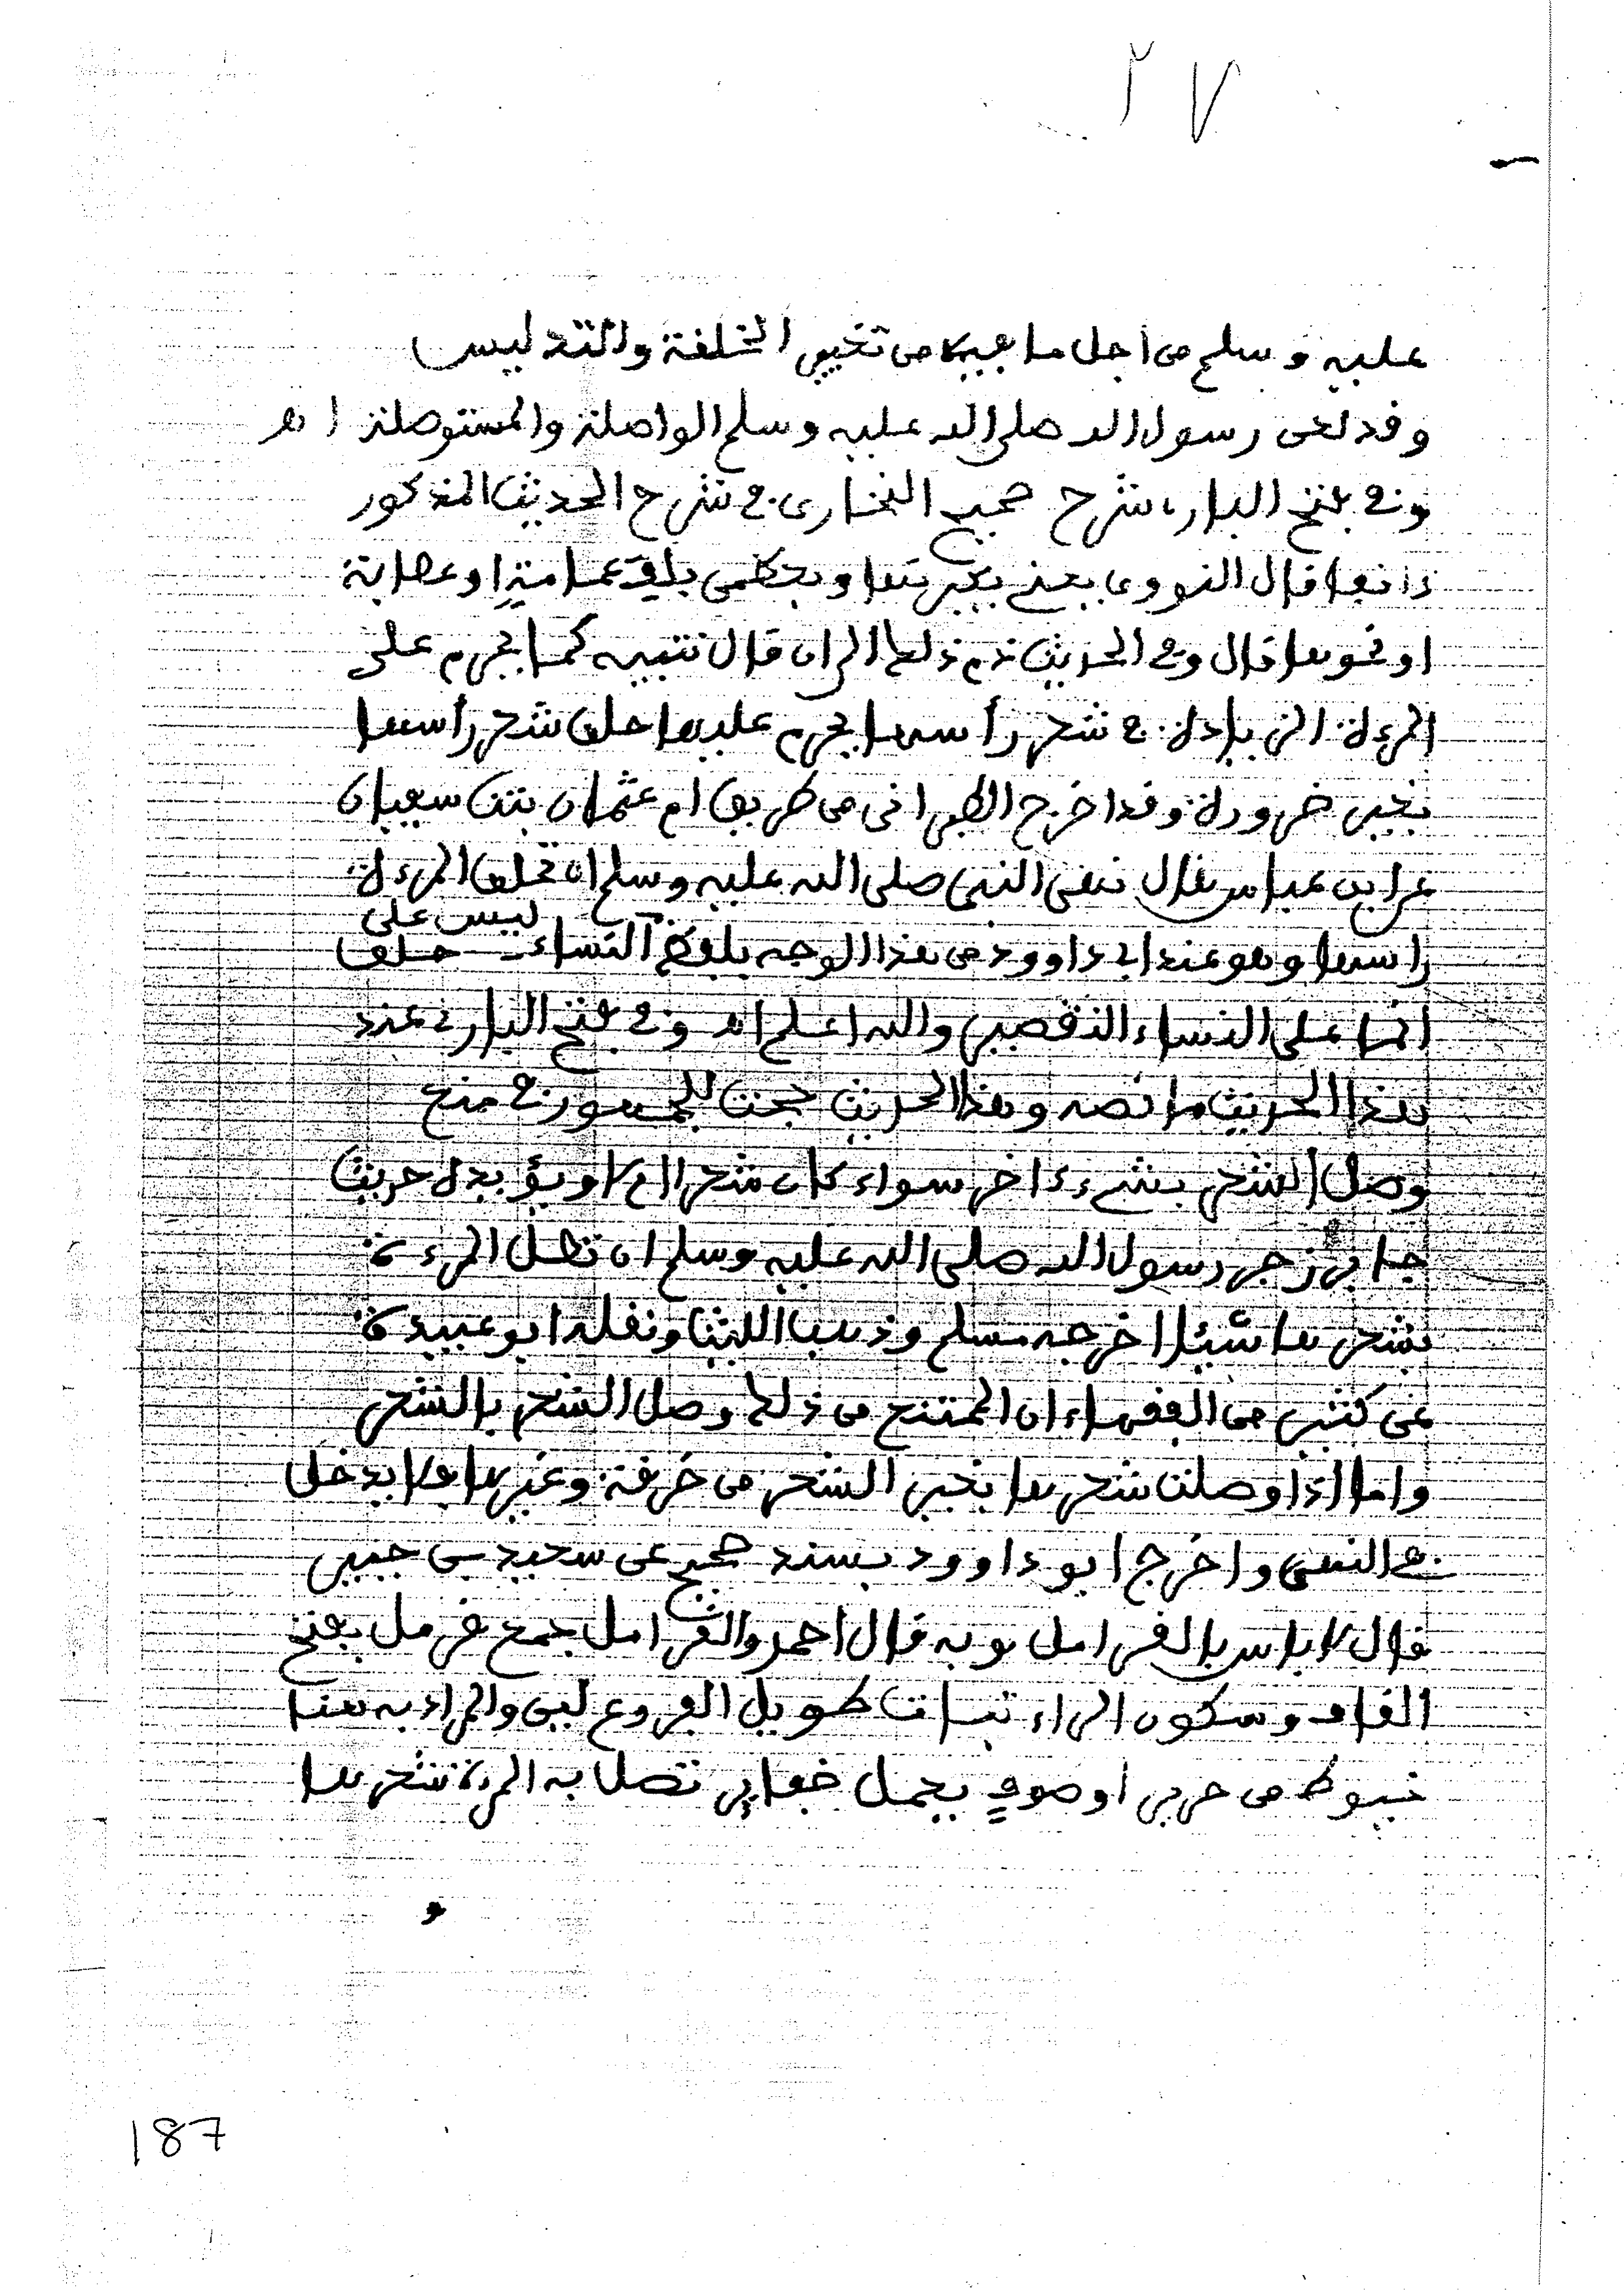 ٢٧
عليه وسلم من اجل ما فيه من تغيير الخلفة والتدليس
وقد لعن رسول الله صلى الله عليه وسلم الواصلة والمستوصلة اهـ
وفي فتح البارى شرح صحيح البخارى في شرح الحديث المذكور
ءانفا قال النووى يعنى يكبرنها ويعظمن بلف عمامة او عصابة
او نحوها قال وفي الحديث ذم ذلك الى ان قال تنبيه كما يحرم على
المرءة الزيادة في شعر رأسها يحرم عليها حلق شعر رأسها
بغير ضرورة وقد اخرج الطبرانى من طريق ام عثمان بنت سفيان
عن ابن عباس قال نهى النبى صلى الله عليه وسلم ان تحلق المرءة
راسها وهو عند ابى داوود من هذا الوجه بلفظ ليس على النساء حلق
انما على النساء التقصير والله اعلم اهـ وفي فتح البارى عند
هذا الحديث ما نصه وهذا الحديث حجة للجمهور في منع
وصل الشعر بشىء ءاخر سواء كان شعرا ام لا ويؤيده حديث
جابر زجر رسول الله صلى الله عليه وسلم ان تصل المرءة
بشعرها شيئا اخرجه مسلم وذهب الليث ونقله ابو عبيدة
عن كثير من الفقهاء ان الممتنع من ذلك وصل الشعر بالشعر
واما اذا وصلت شعرها بغير الشعر من خرقة وغيرها فلا يدخل
في النهى واخرج ابو داوود بسند صحيح عن سعيد بن جبير
قال لا باس بالقرامل وبه قال احمد والقرامل جمع قرمل بفتح
القاف وسكون الراء نبات طويل الفروع لين والمراد به هنا
خيوط من حرير او صوف يعمل ضفاير تصل به المرءة شعرها
و
187